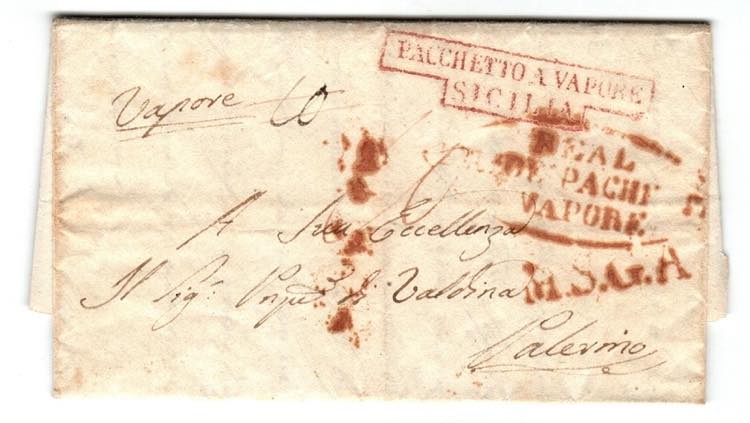 PACCHETTO A VAPORE
SICILIA
Vapore
REAL
DE PACHI
VAPORE
A Sua Eccellenza
Il Sig.
di Valdina
M.S.G.A
Palermo